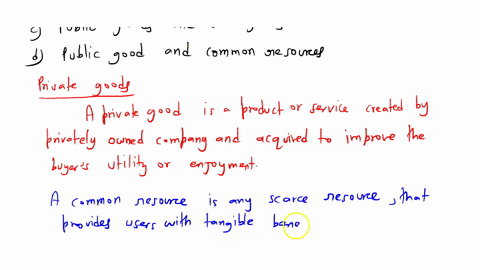 d) Public good and common resources
Private goods
A private good is a product or service created by
privately owned company and acquired to improve the
buyer's utility or enjoyment.
A common resource is any scarce resource, that
provides users with tangible bene